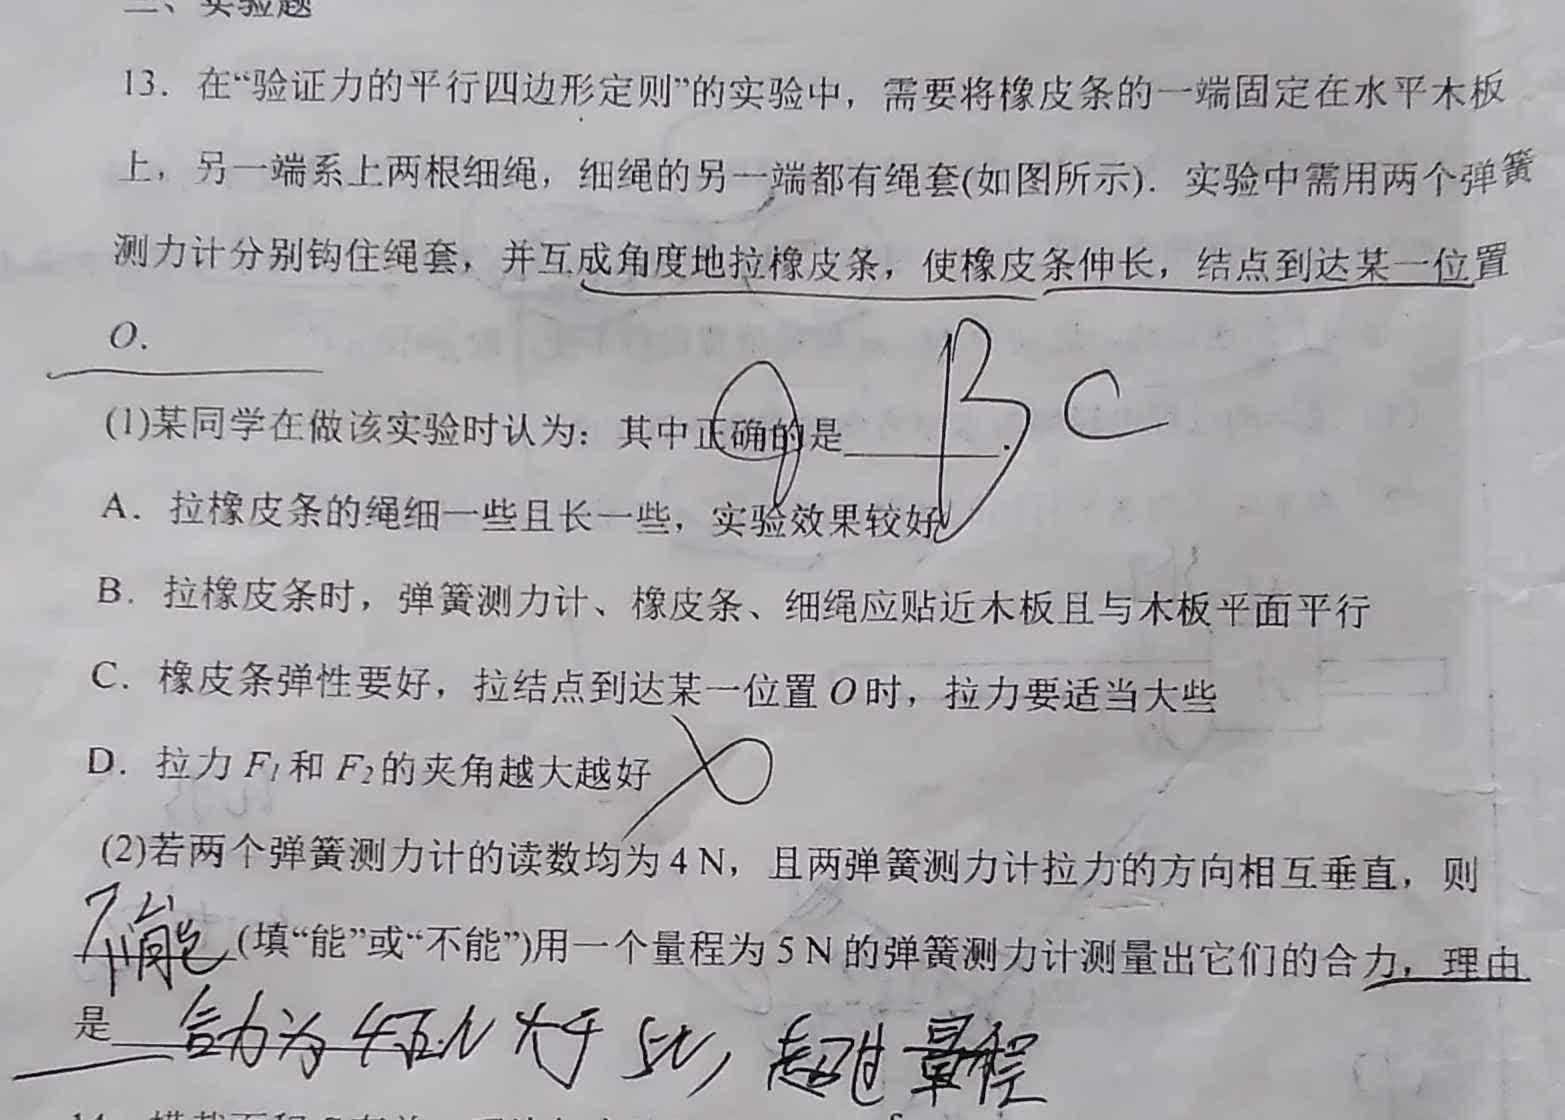 二、实验题
13．在“验证力的平行四边形定则”的实验中，需要将橡皮条的一端固定在水平木板
上，另一端系上两根细绳，细绳的另一端都有绳套(如图所示)．实验中需用两个弹簧
测力计分别钩住绳套，并互成角度地拉橡皮条，使橡皮条伸长，结点到达某一位置
O．
BC
(1)某同学在做该实验时认为：其中正确的是______．
A．拉橡皮条的绳细一些且长一些，实验效果较好
B．拉橡皮条时，弹簧测力计、橡皮条、细绳应贴近木板且与木板平面平行
C．橡皮条弹性要好，拉结点到达某一位置 O 时，拉力要适当大些
D．拉力 F₁和 F₂的夹角越大越好
(2)若两个弹簧测力计的读数均为 4 N，且两弹簧测力计拉力的方向相互垂直，则
不能(填“能”或“不能”)用一个量程为 5 N 的弹簧测力计测量出它们的合力，理由
是 合力为 4√2N 大于 5N，超过量程